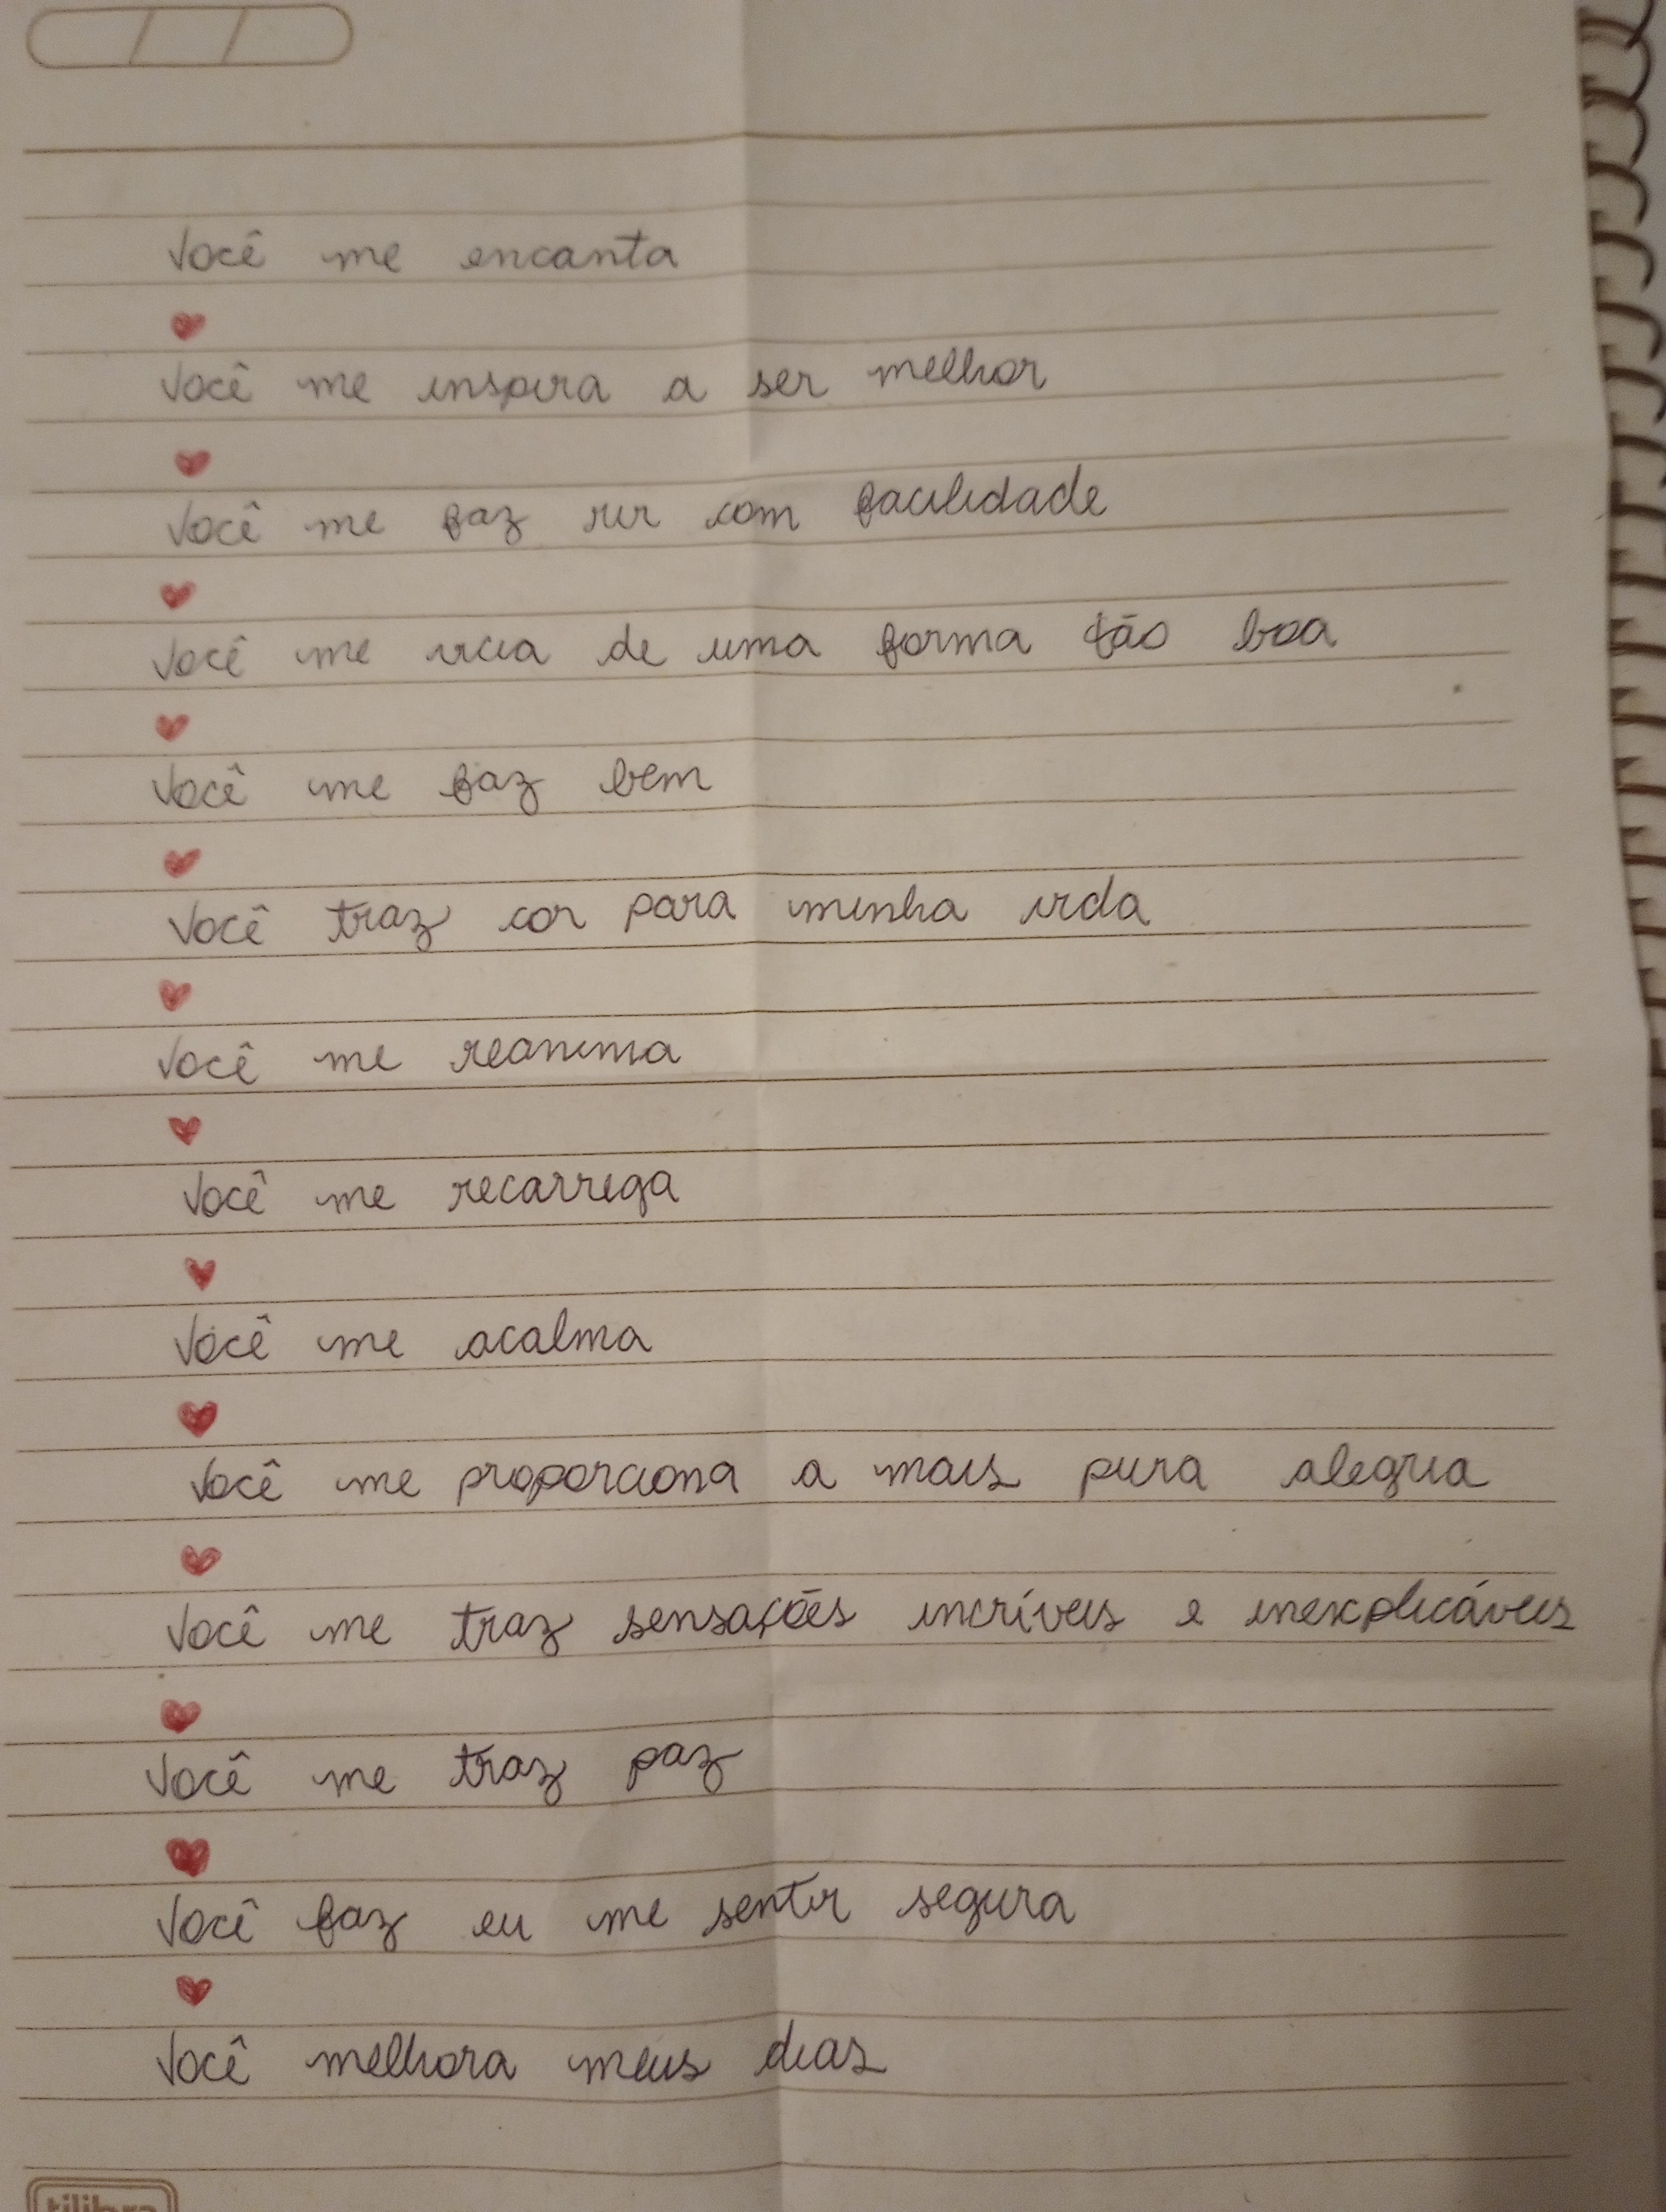 Você me encanta
Você me inspira a ser melhor
Você me faz rir com facilidade
Você me vicia de uma forma tão boa
Você me faz bem
Você traz cor para minha vida
Você me reanima
Você me recarrega
Você me acalma
Você me proporciona a mais pura alegria
Você me traz sensações incríveis e inexplicáveis
Você me traz paz
Você faz eu me sentir segura
Você melhora meus dias
tilibra